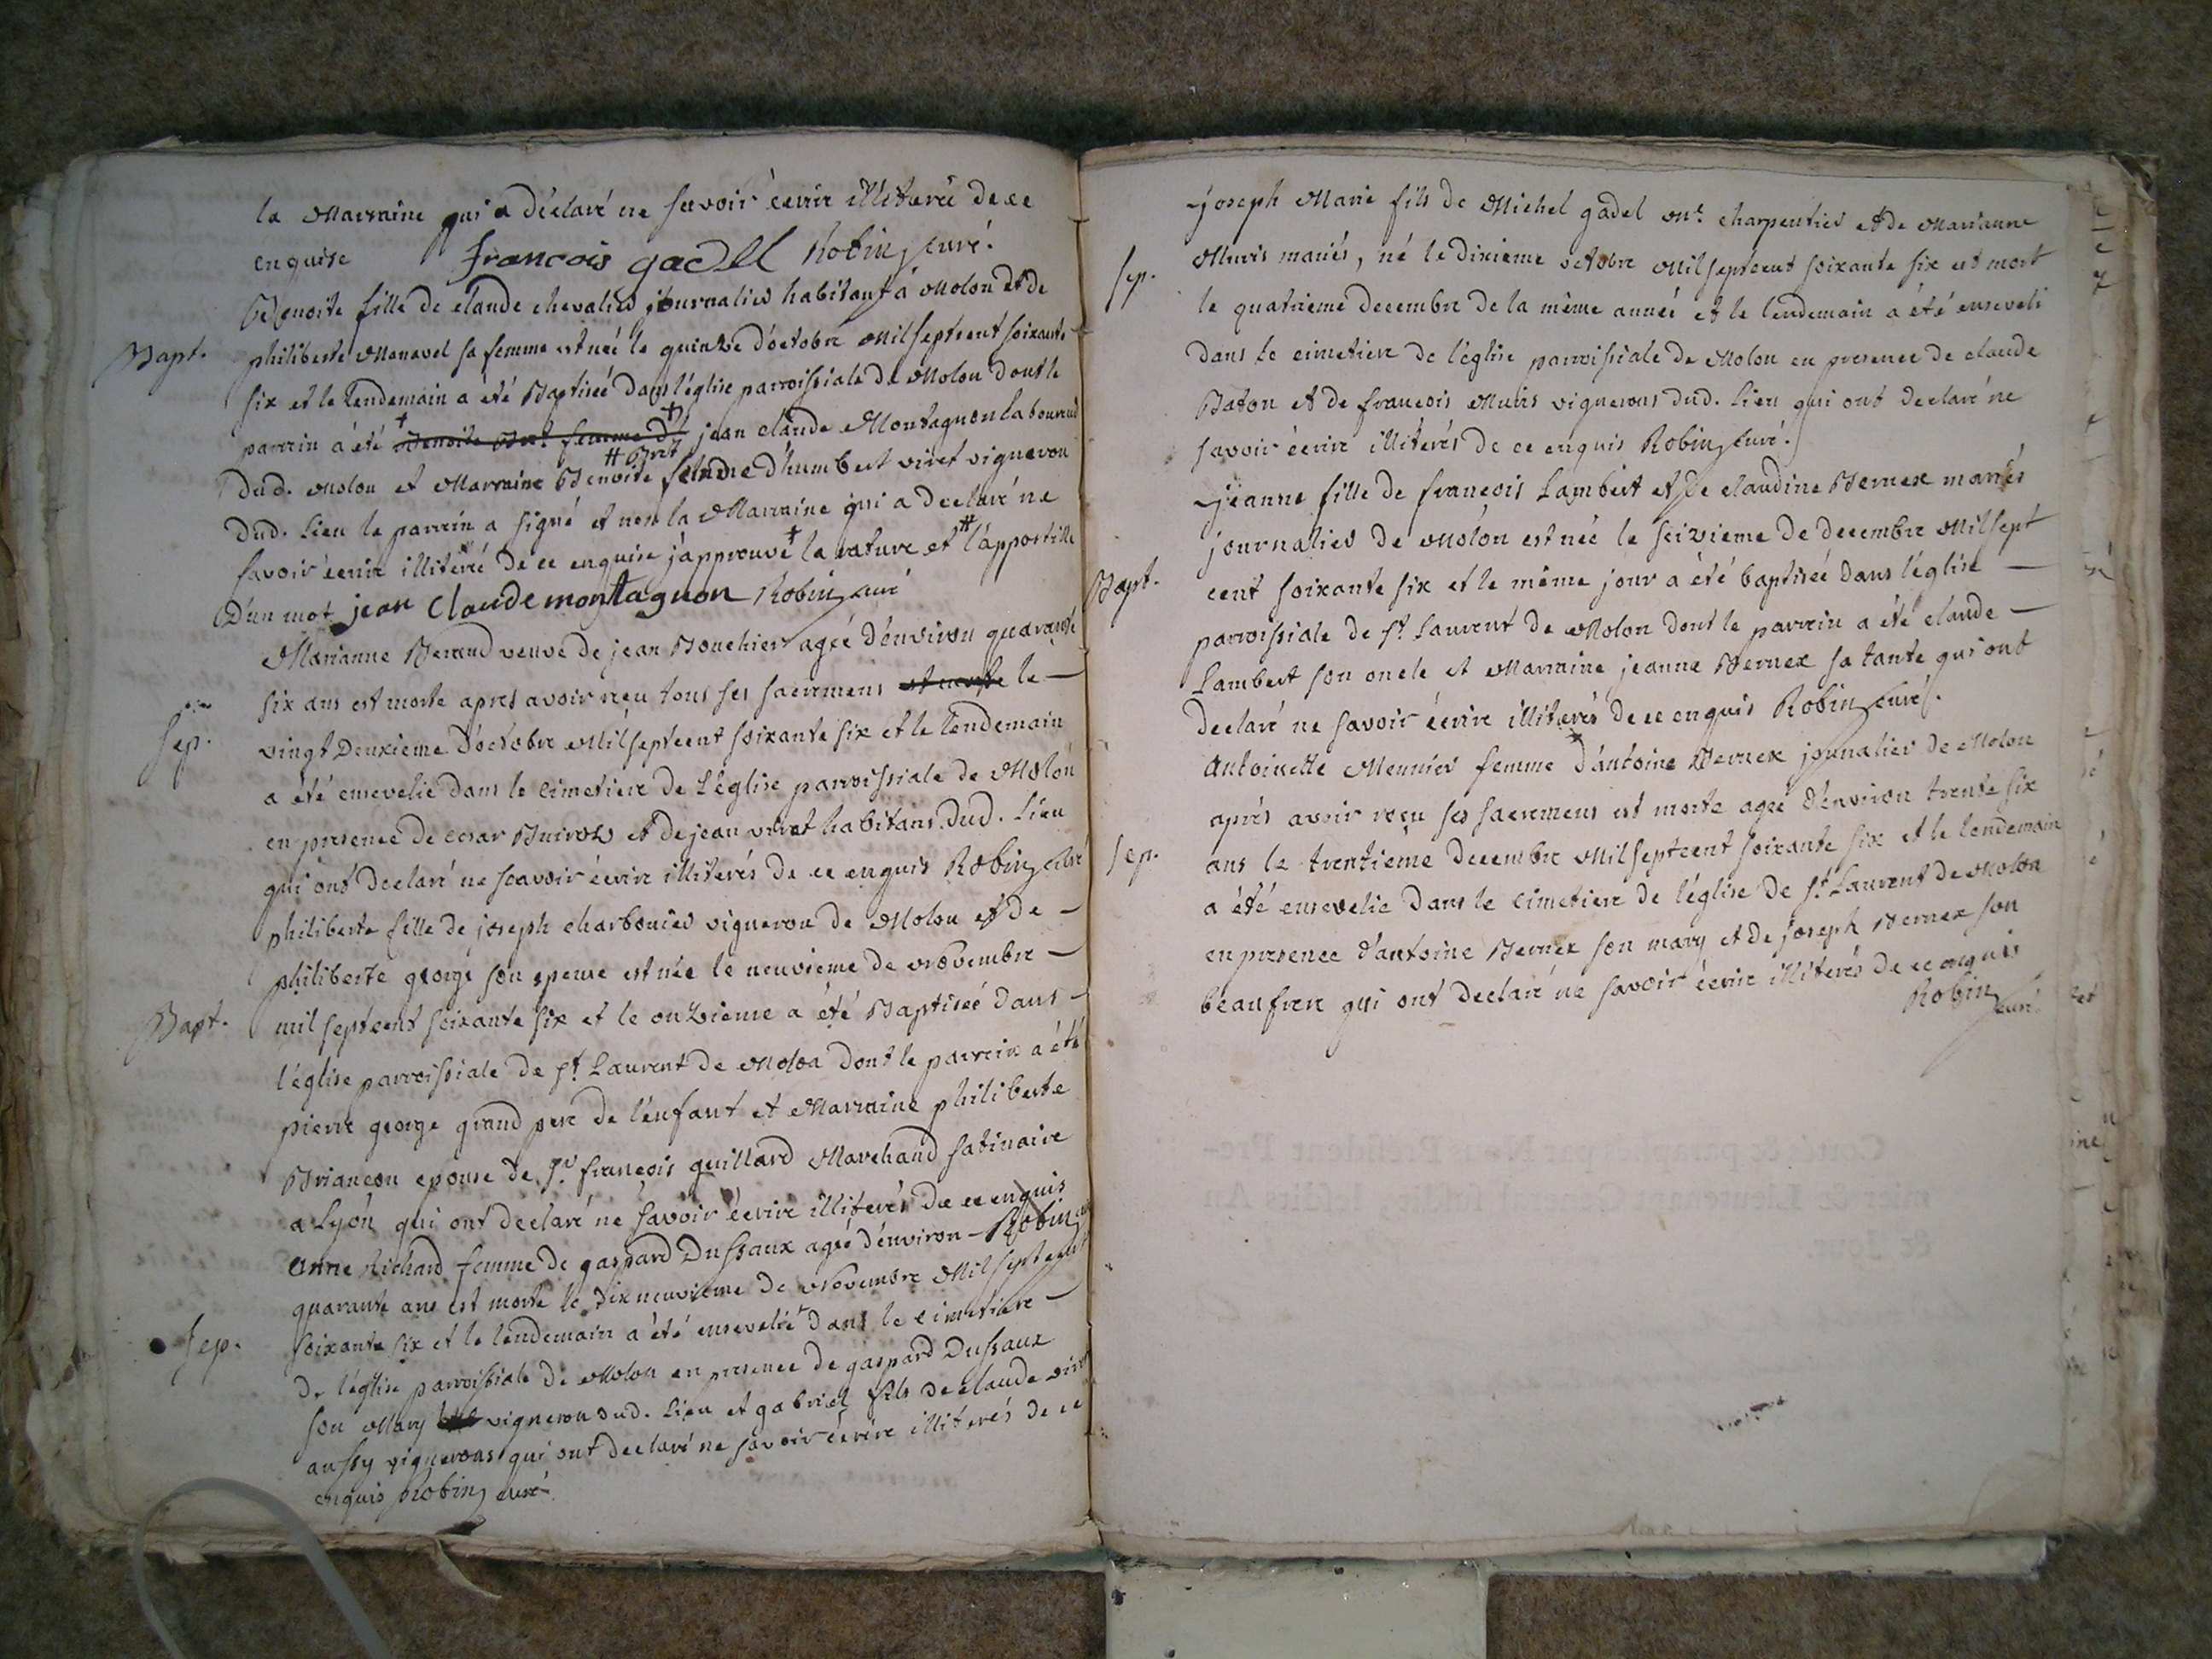 la Marraine qui a déclaré ne scavoir écrire illiterée de ce
enquise francois gadel Robin curé.
Bapt.
Benoite fille de claude chevalier journalier habitant à Molon et de
philiberte Menevel sa femme est née le quinze d'octobre Mil septcent soixante
six et le lendemain a été Baptisée dans l'église parroissiale de Molon dont le
parrein a été jean claude Montagnon laboureur
dud. Molon et Marraine Benoite # Bret femme d'humbert viret vigneron
dud. Lieu le parrein a signé et non la Marraine qui a declaré ne
savoir écrire illiterée de ce enquise j'approuve la rature et # l'appostille
d'un mot jean Claude montagnon Robin curé
Sep.
Marianne Beraud veuve de jean Bouchier agée d'environ quarante
six ans est morte apres avoir reçu tous ses sacremens le
vingt deuxieme d'octobre Mil septcent soixante six et le lendemain
a été ensevelie dans le cimetiere de L'église parroissiale de Molon
en presence de cesar et de jean viret habitans dud. Lieu
qui ont declaré ne scavoir écrire illiterés de ce enquis Robin curé
Bapt.
philiberte fille de joseph charbonier vigneron de Molon et de
philiberte george son epouse est née le neuvieme de Novembre
mil septcent soixante six et le onzieme a été Baptisée dans
l'église parroissiale de St. Laurent de Molon dont le parrein a été
pierre george grand pere de l'enfant et Marraine philiberte
Briancon epouse de Sr. françois guillard Marchand satinaire
a Lyon qui ont declaré ne savoir écrire illiterés de ce enquis
Robin
Sep.
Anne Richard femme de gaspard Dussaux agée d'environ
quarante ans est morte le dix neuvieme de Novembre Mil septcent
soixante six et le lendemain a été ensevelie dans le cimetiere
de l'église parroissiale de Molon en presence de gaspard Dussaux
son Mary vigneron dud. Lieu et gabriel fils de claude viret
aussy vignerons qui ont declaré ne savoir écrire illiterés de ce
enquis Robin curé
Sep.
joseph Marie fils de Michel gadel Mr. charpentier et de Marianne
Muris mariés, né le dixieme octobre Mil septcent soixante six est mort
le quatrieme decembre de la même année et le lendemain a été enseveli
dans le cimetiere de l'église parroissiale de Molon en presence de claude
Baton et de francois Muris vignerons dud. Lieu qui ont declaré ne
savoir écrire illiterés de ce enquis Robin curé.
Bapt.
jeanne fille de francois Lambert et de claudine Bernex mariés
journalier de Molon est née le seizieme de decembre Mil sept
cent soixante six et le même jour a été baptisée dans l'église
parroissiale de St. Laurent de Molon dont le parrein a été claude
Lambert son oncle et Marraine jeanne Bernex sa tante qui ont
declaré ne savoir écrire illiterés de ce enquis Robin curé.
Sep.
Antoinette Meunier femme d'antoine Bernex journalier de Molon
aprés avoir reçu ses sacremens est morte agée d'environ trente six
ans le trentieme decembre Mil septcent soixante six et le lendemain
a été ensevelie dans le cimetiere de l'église de St. Laurent de Molon
en presence d'antoine Bernex son mary et de joseph Bernex son
beaufrere qui ont declaré ne savoir écrire illiterés de ce enquis
Robin curé